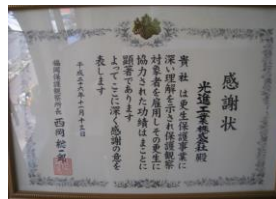 感謝状
光進工業株式会社殿
貴社は更生保護事業に
深い理解を示され保護観察
対象者を雇用しその更生に
協力された功績はまことに
顕著であります
よってここに深く感謝の意を
表します
平成二十六年十一月十五日
福岡保護観察所長 西岡総一郎